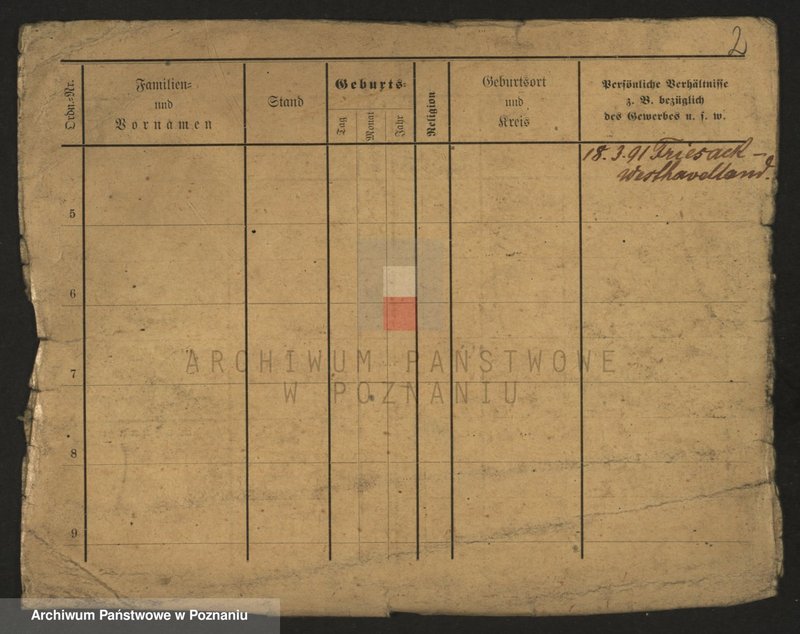 2
Ordn.=Nr.
Familien=
und
Vornamen
Stand
Geburts=
Tag
Monat
Jahr
Religion
Geburtsort
und
Kreis
Persönliche Verhältnisse
z. B. bezüglich
des Gewerbes u. s. w.
18. 3. 91 Friesack –
Westhavelland.
5
6
7
8
9
ARCHIWUM PAŃSTWOWE
W POZNANIU
Archiwum Państwowe w Poznaniu